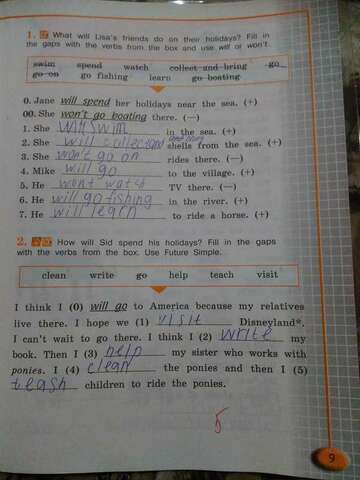 1. What will Lisa's friends do on their holidays? Fill in
the gaps with the verbs from the box and use will or won't.
swim spend watch collect and bring go
go on go fishing learn go boating
0. Jane will spend her holidays near the sea. (+)
00. She won't go boating there. (—)
1. She will swim in the sea. (+)
2. She will collect and bring shells from the sea. (+)
3. She won't go on rides there. (—)
4. Mike will go to the village. (+)
5. He wont watch TV there. (—)
6. He will go fishing in the river. (+)
7. He will learn to ride a horse. (+)
2. How will Sid spend his holidays? Fill in the gaps
with the verbs from the box. Use Future Simple.
clean write go help teach visit
I think I (0) will go to America because my relatives
live there. I hope we (1) visit Disneyland*.
I can't wait to go there. I think I (2) write my
book. Then I (3) help my sister who works with
ponies. I (4) clean the ponies and then I (5)
teash children to ride the ponies.
5
9